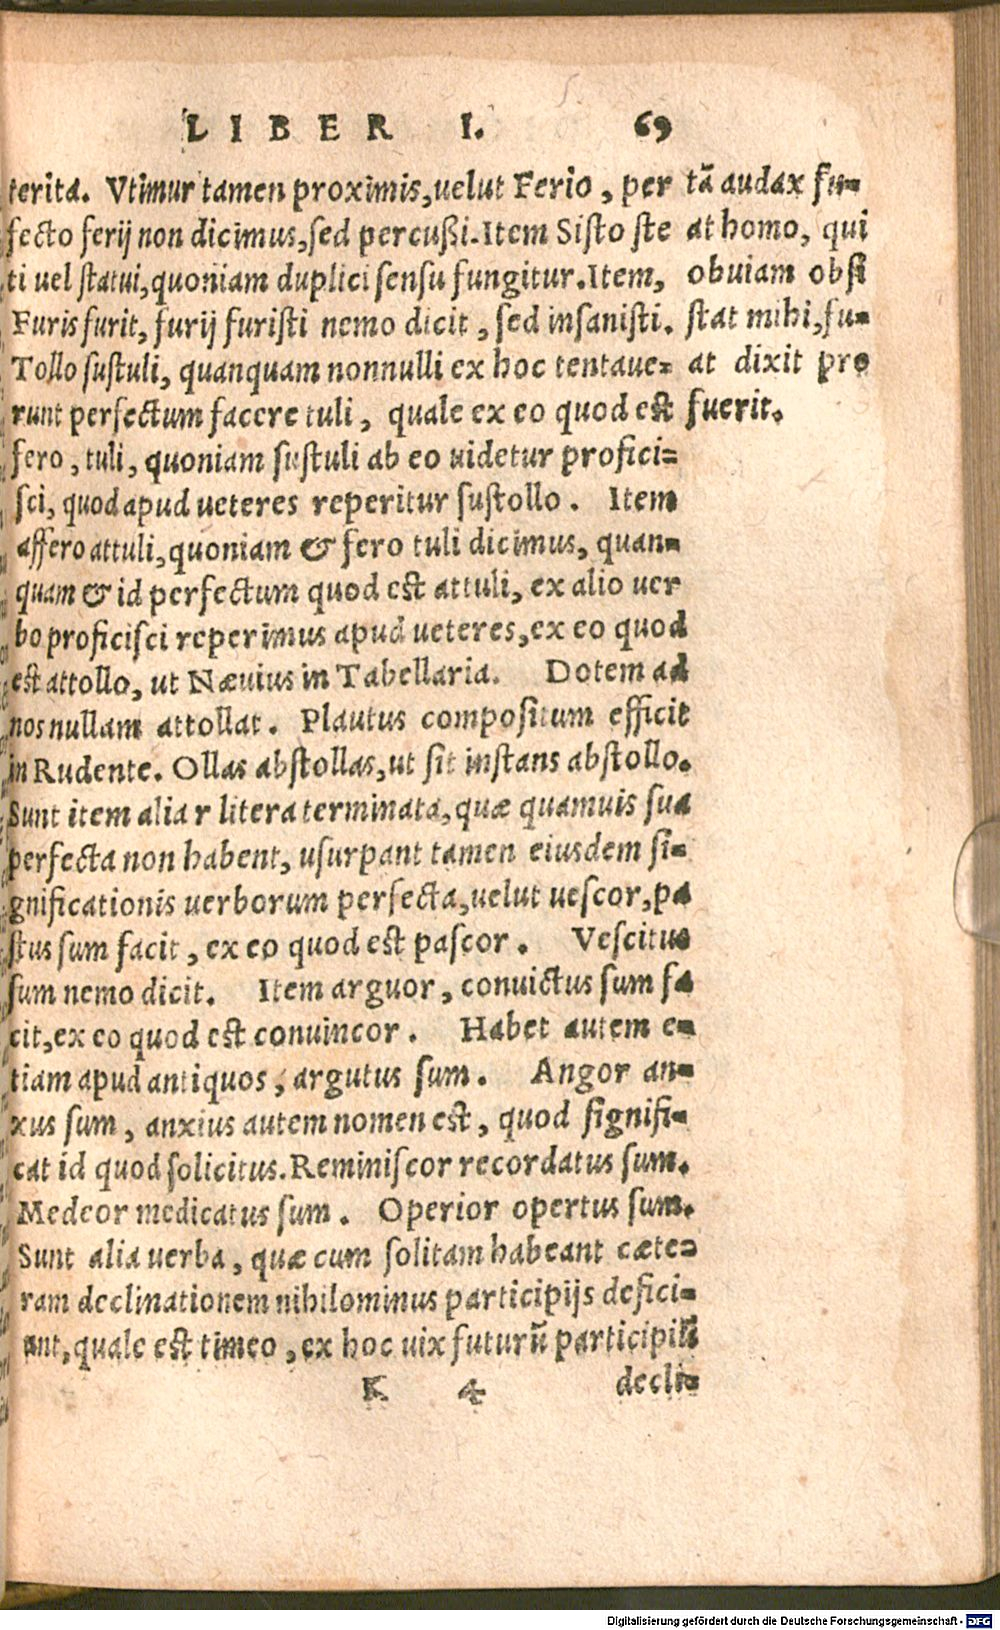 LIBER I. 69
terita. Vtimur tamen proximis, uelut Ferio, per
fecto ferij non dicimus, sed percußi. Item Sisto ste
ti uel statui, quoniam duplici sensu fungitur. Item,
Furis furit, furij furisti nemo dicit, sed insanisti.
Tollo sustuli, quanquam nonnulli ex hoc tentaue-
runt perfectum facere tuli, quale ex eo quod est
fero, tuli, quoniam sustuli ab eo uidetur profici-
sci, quod apud ueteres reperitur sustollo. Item
affero attuli, quoniam & fero tuli dicimus, quan-
quam & id perfectum quod est attuli, ex alio uer
bo proficisci reperimus apud ueteres, ex eo quod
est attollo, ut Næuius in Tabellaria. Dotem ad
nos nullam attollat. Plautus compositum efficit
in Rudente. Ollas abstollas, ut sit instans abstollo.
Sunt item alia r litera terminata, quæ quamuis sua
perfecta non habent, usurpant tamen eiusdem si-
gnificationis uerborum perfecta, uelut uescor, pa
stus sum facit, ex eo quod est pascor. Vescitus
sum nemo dicit. Item arguor, conuictus sum fa
cit, ex eo quod est conuincor. Habet autem e-
tiam apud antiquos, argutus sum. Angor an-
xus sum, anxius autem nomen est, quod signifi-
cat id quod solicitus. Reminiscor recordatus sum.
Medeor medicatus sum. Operior opertus sum.
Sunt alia uerba, quæ cum solitam habeant cæte-
ram declinationem nihilominus participijs defici-
ant, quale est timeo, ex hoc uix futurũ participiũ
K 4 decli-
tã audax fu-
at homo, qui
obuiam obsi
stat mihi, fu-
at dixit pro
fuerit.
Digitalisierung gefördert durch die Deutsche Forschungsgemeinschaft - DFG